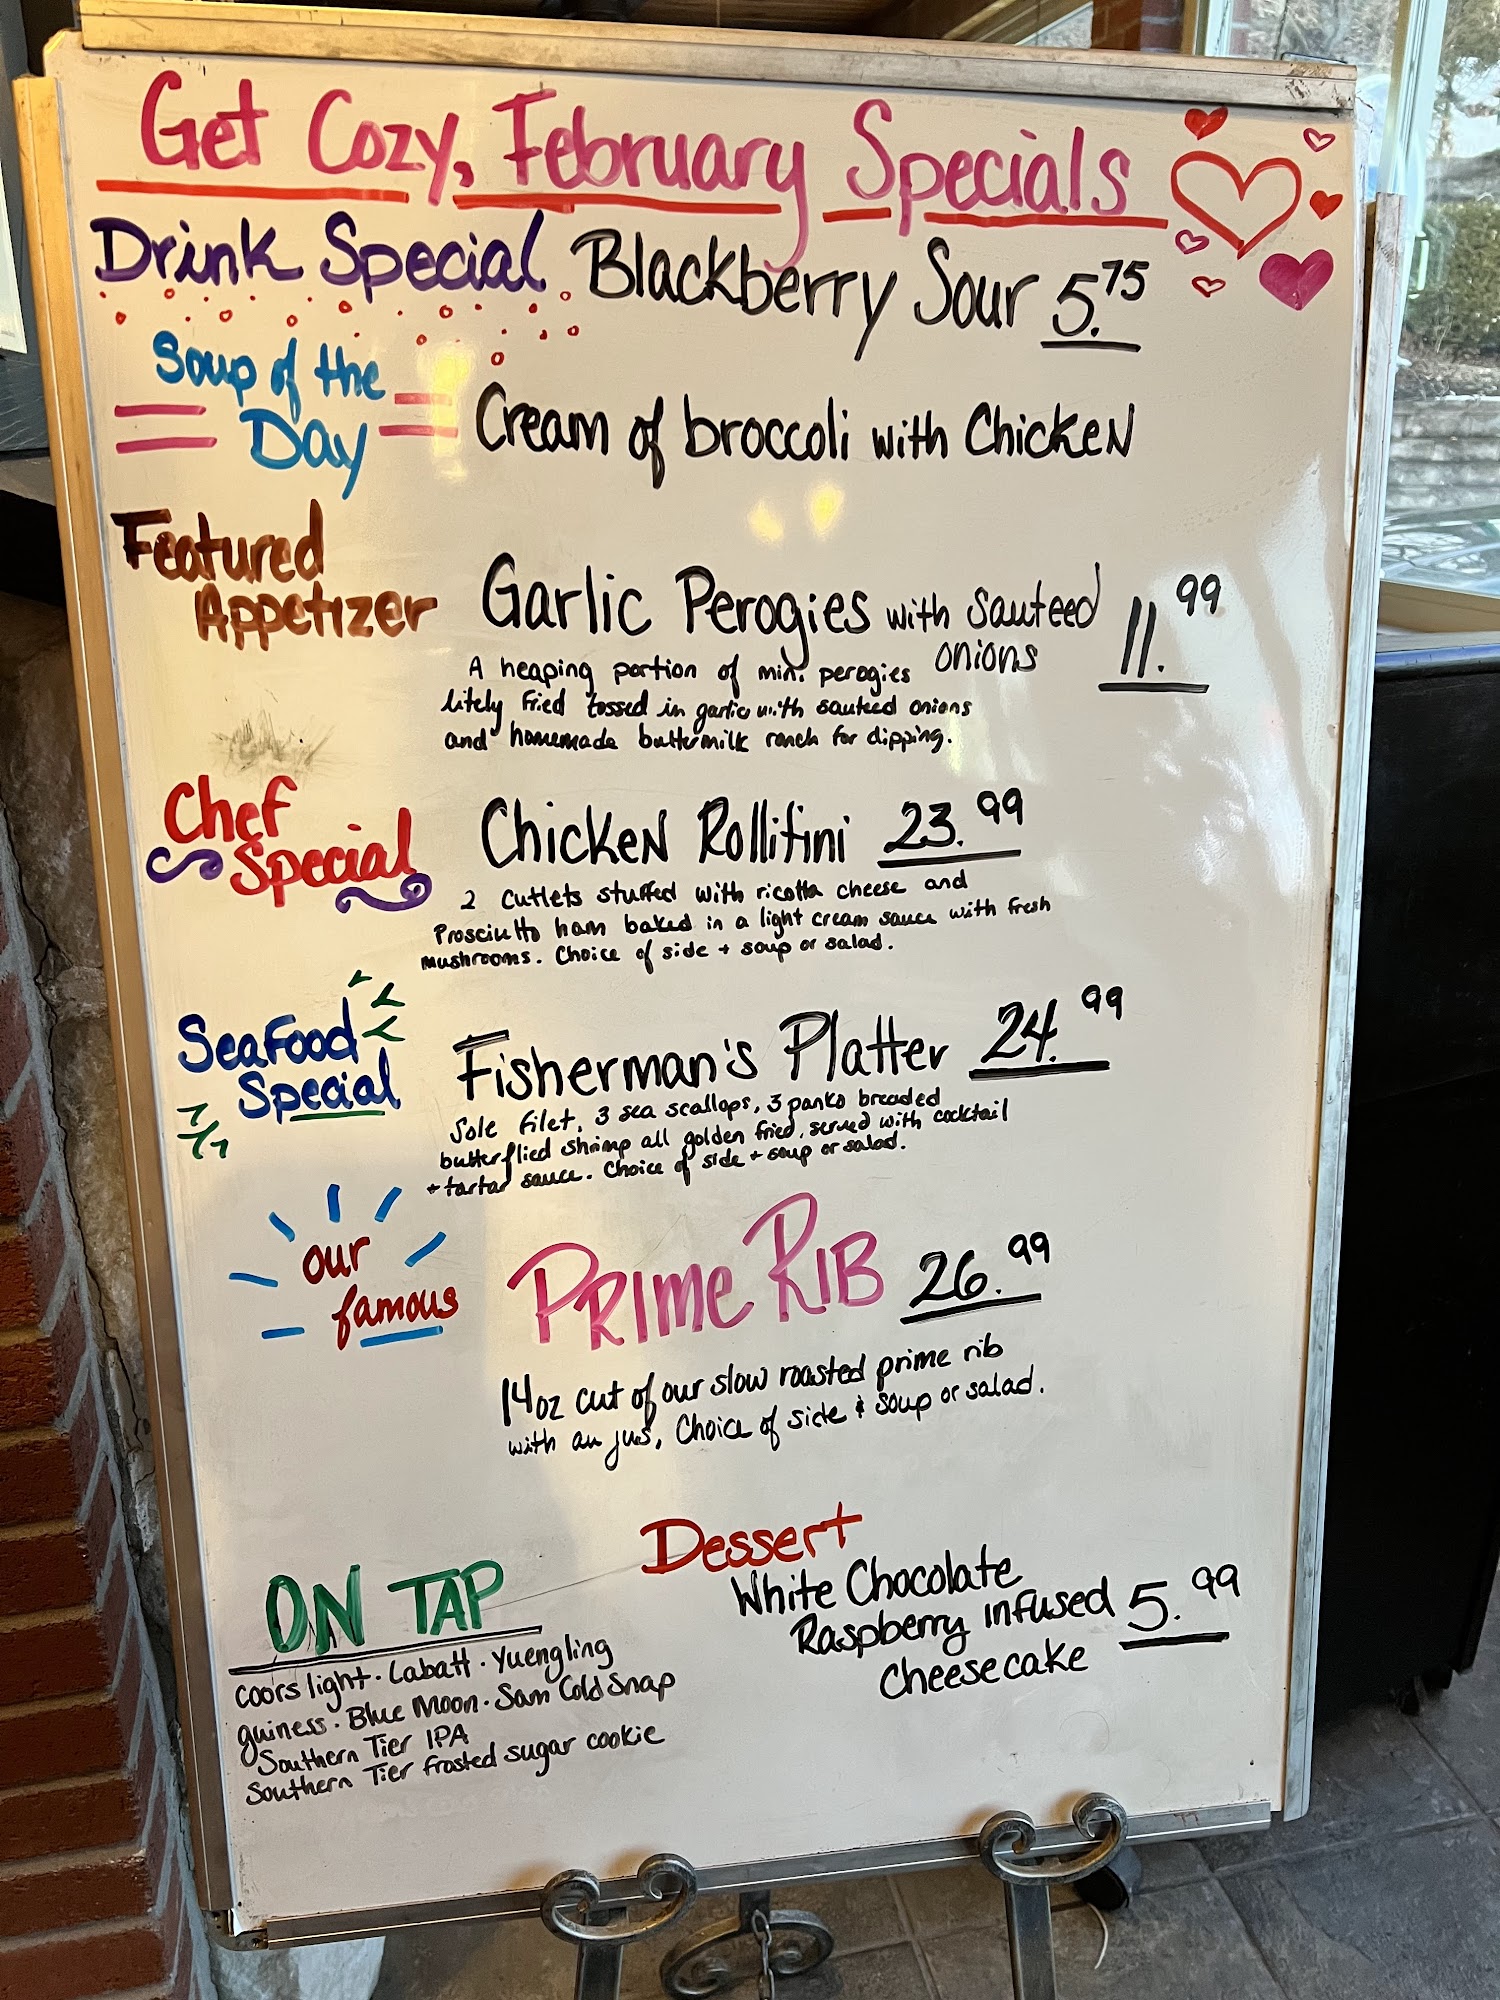 Get Cozy, February Specials
Drink Special Blackberry Sour 5.75
Soup of the
Day
Cream of broccoli with Chicken
Featured
Appetizer
Garlic Perogies with Sauteed
onions
11.99
A heaping portion of mini perogies
litely fried tossed in garlic with sauteed onions
and homemade buttermilk ranch for dipping.
Chef
Special
Chicken Rollitini 23.99
2 cutlets stuffed with ricotta cheese and
Prosciutto ham baked in a light cream sauce with fresh
mushrooms. Choice of side + soup or salad.
Seafood
Special
Fisherman's Platter 24.99
Sole filet, 3 sea scallops, 3 panko breaded
butterflied shrimp all golden fried, served with cocktail
+ tartar sauce. Choice of side + soup or salad.
our
famous
Prime Rib 26.99
14oz cut of our slow roasted prime rib
with au jus, Choice of side & soup or salad.
Dessert
White Chocolate
Raspberry infused
Cheesecake
5.99
ON TAP
Coors light · Labatt · Yuengling
guiness · Blue Moon · Sam Cold Snap
Southern Tier IPA
Southern Tier frosted sugar cookie